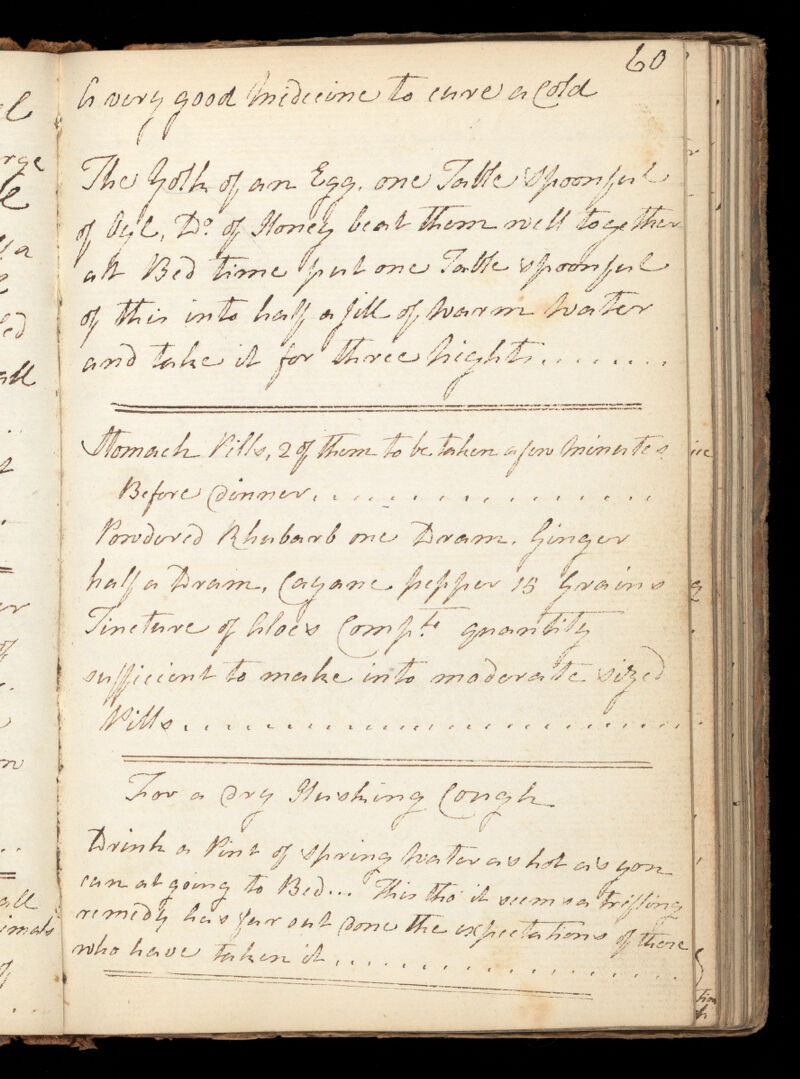 60
A very good Medicine to cure a Cold
The Yolk of an Egg, one Table Spoonful
of Oyl, Do. of Honey beat them well together
att Bed time put one Table spoonful
of this into half a jill of Warm Water
and take it for three Nights........
Stomach Pills, 2 of them to be taken a few Minutes
Before Dinner..................
Powdered Rhubarb one Dram, Ginger
half a Dram, Cayane pepper 15 Grains
Tincture of Aloes Compte. quantity
sufficient to make into moderate sized
Pills.........................
For a Dry Husking Cough
Drink a Pint of Spring Water as hot as you
can at going to Bed... This tho' it seems a trifling
remedy has far out done the expectations of those
who have taken it..................